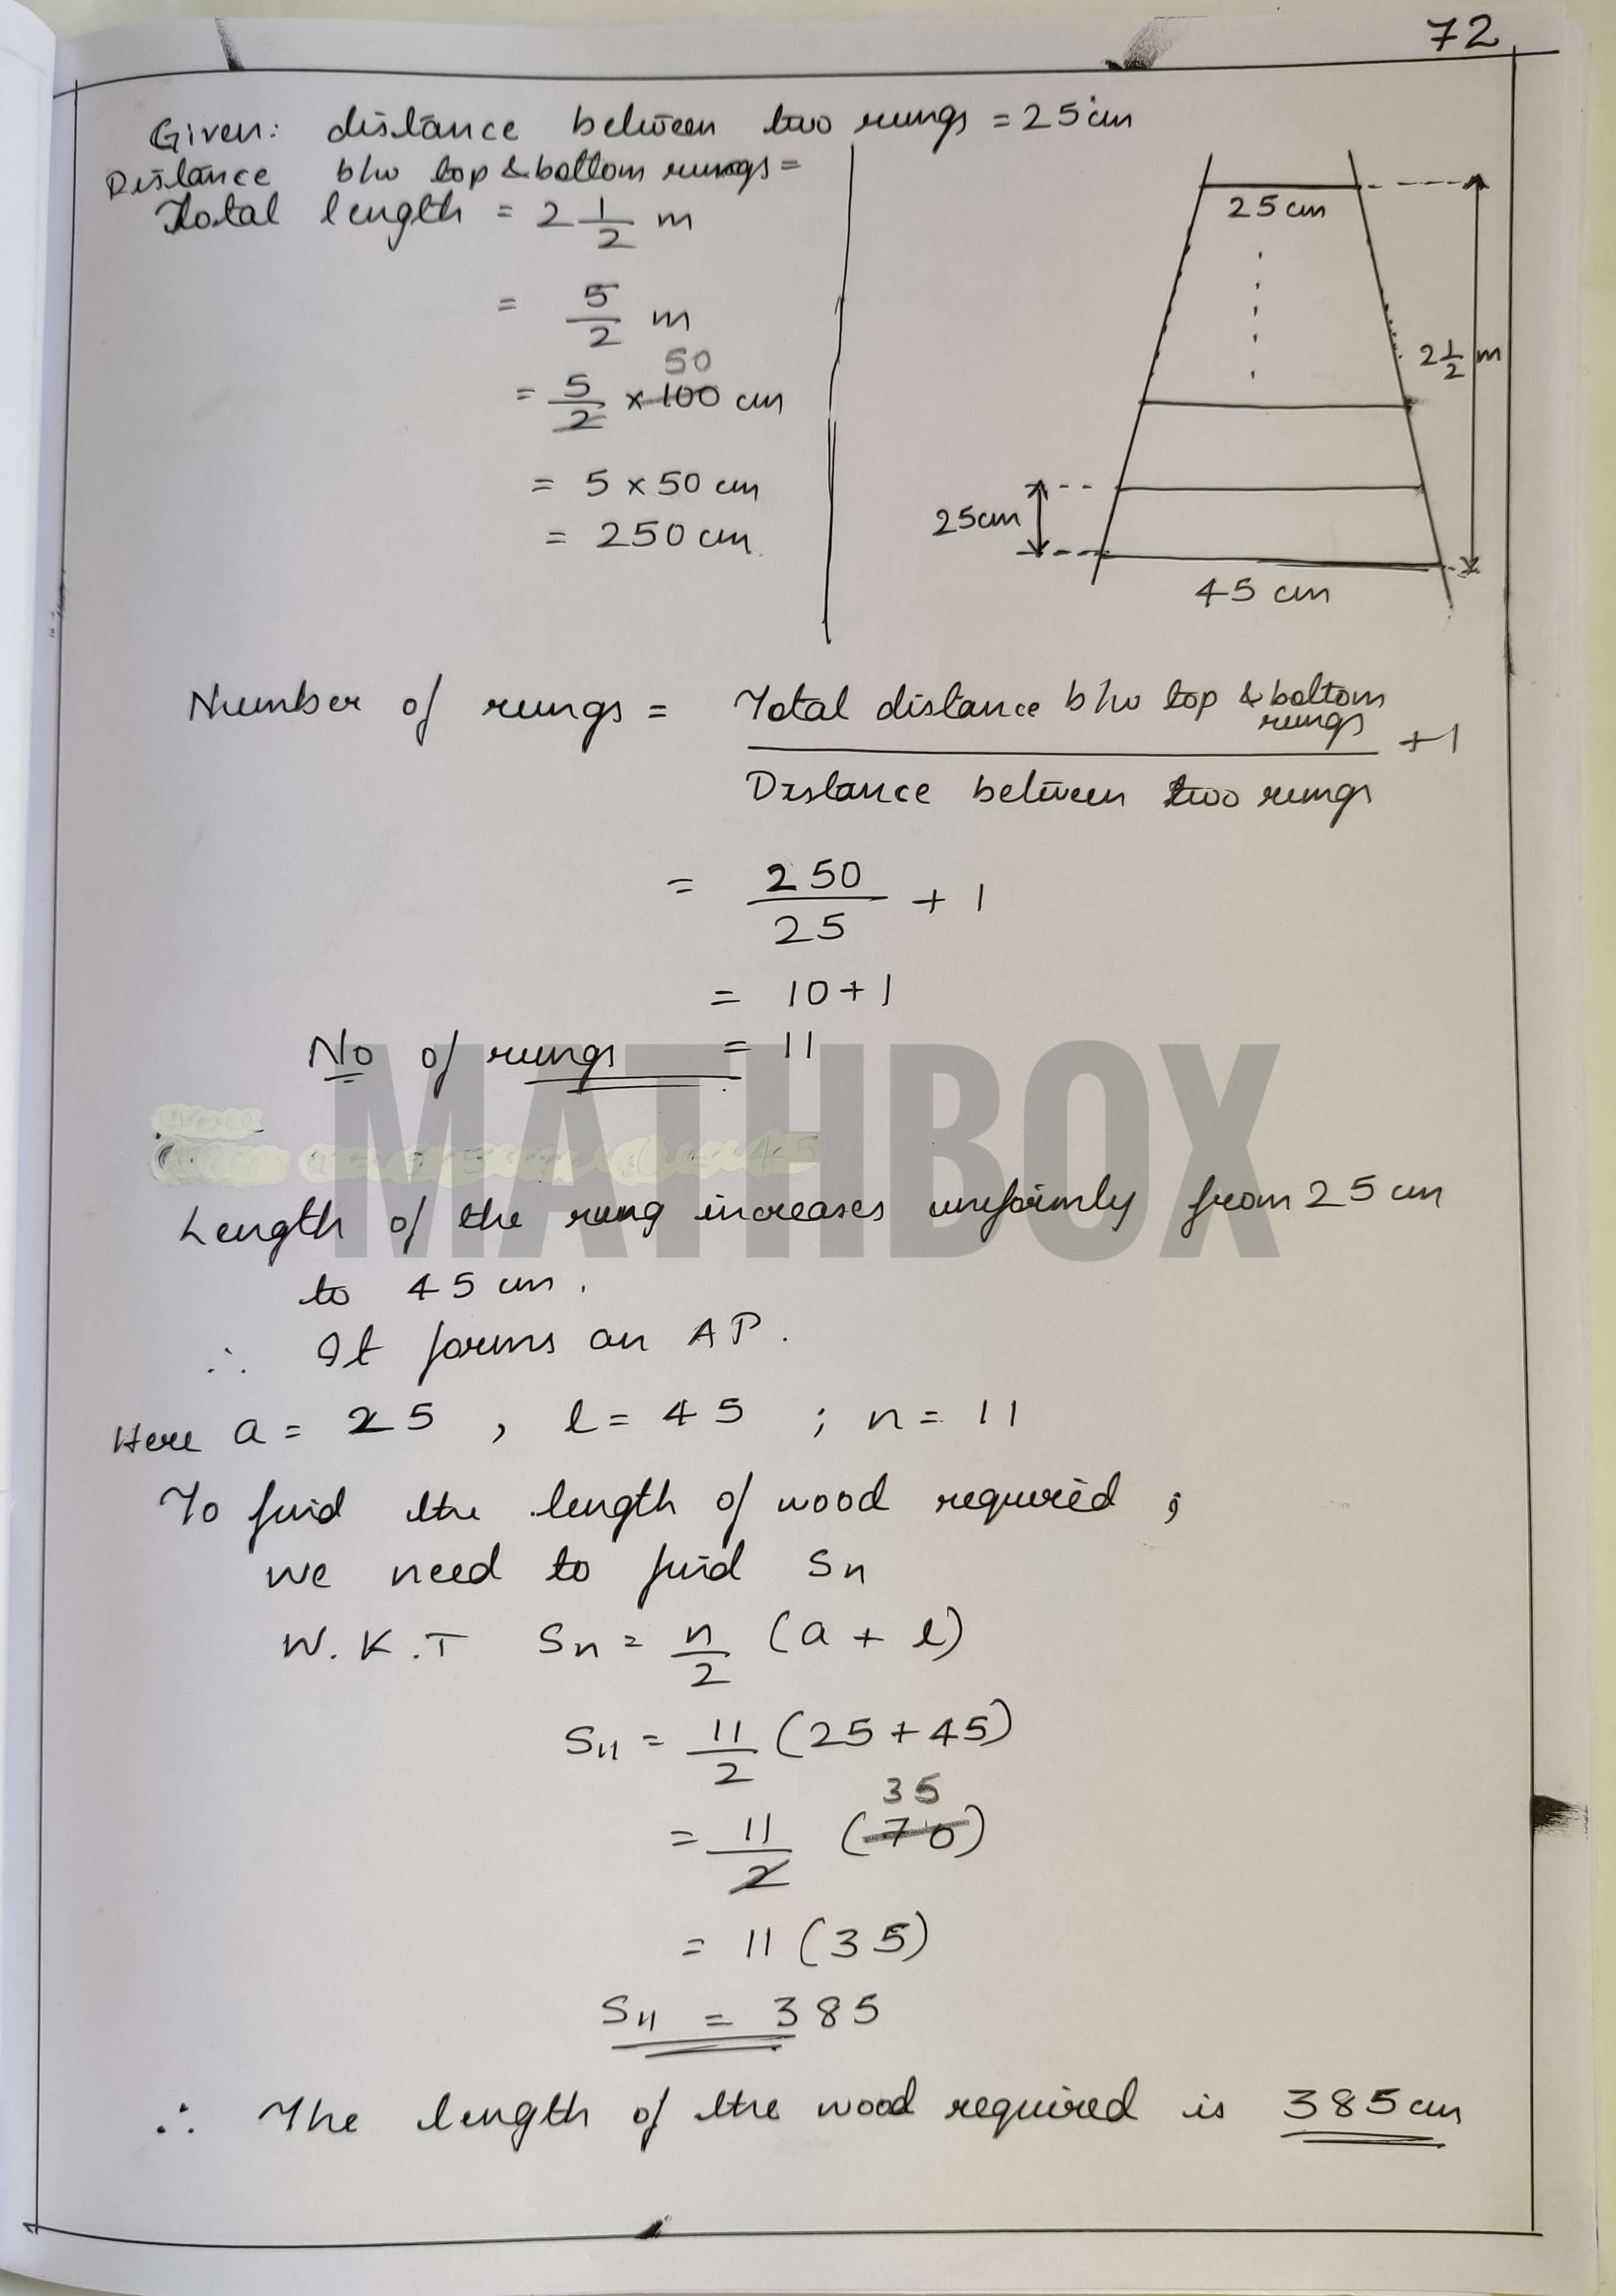 72
Given: distance between two rungs = 25 cm
Distance b/w top & bottom rungs =
Total length = 2 1/2 m
= 5/2 m
50
= 5/2 × 100 cm
= 5 × 50 cm
= 250 cm.
25 cm
2 1/2 m
25cm
45 cm
Number of rungs = Total distance b/w top & bottom rungs / Distance between two rungs + 1
= 250/25 + 1
= 10 + 1
No of rungs = 11
MATHBOX
Length of the rung increases uniformly from 25 cm
to 45 cm.
∴ It forms an AP.
Here a = 25 , l = 45 ; n = 11
To find the length of wood required ,
we need to find Sn
W.K.T Sn = n/2 (a + l)
S11 = 11/2 (25 + 45)
35
= 11/2 (70)
= 11 (35)
S11 = 385
∴ The length of the wood required is 385 cm